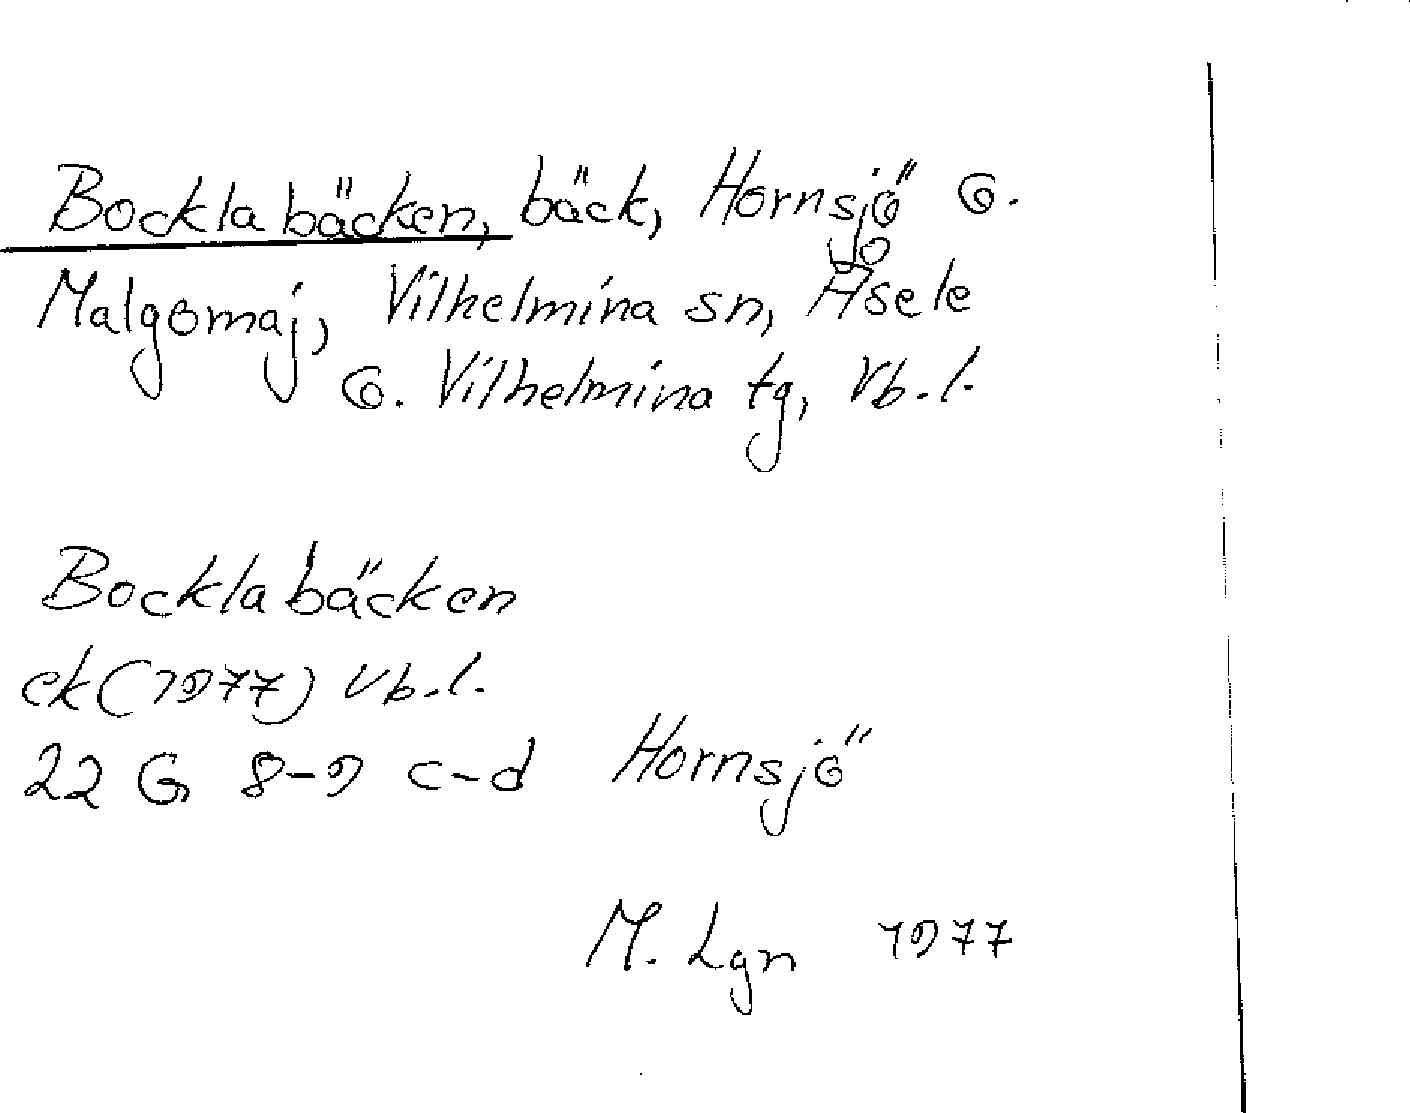 Bocklabäcken, bäck, Hornsjö o.
Malgomaj, Vilhelmina sn, Åsele
o. Vilhelmina tg, Vb.l.
Bocklabäcken
ek (1977) Vb.l.
22 G 8-9 c-d Hornsjö
M. Lgn 1977